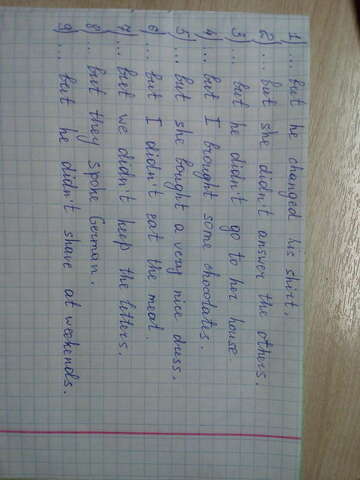 1) ... but he changed his shirt.
2) ... but she didn't answer the others.
3) ... but he didn't go to her house.
4) ... but I brought some chocolates.
5) ... but she bought a very nice dress.
6) ... but I didn't eat the meat.
7) ... but we didn't keep the letters.
8) ... but they spoke German.
9) ... but he didn't shave at weekends.